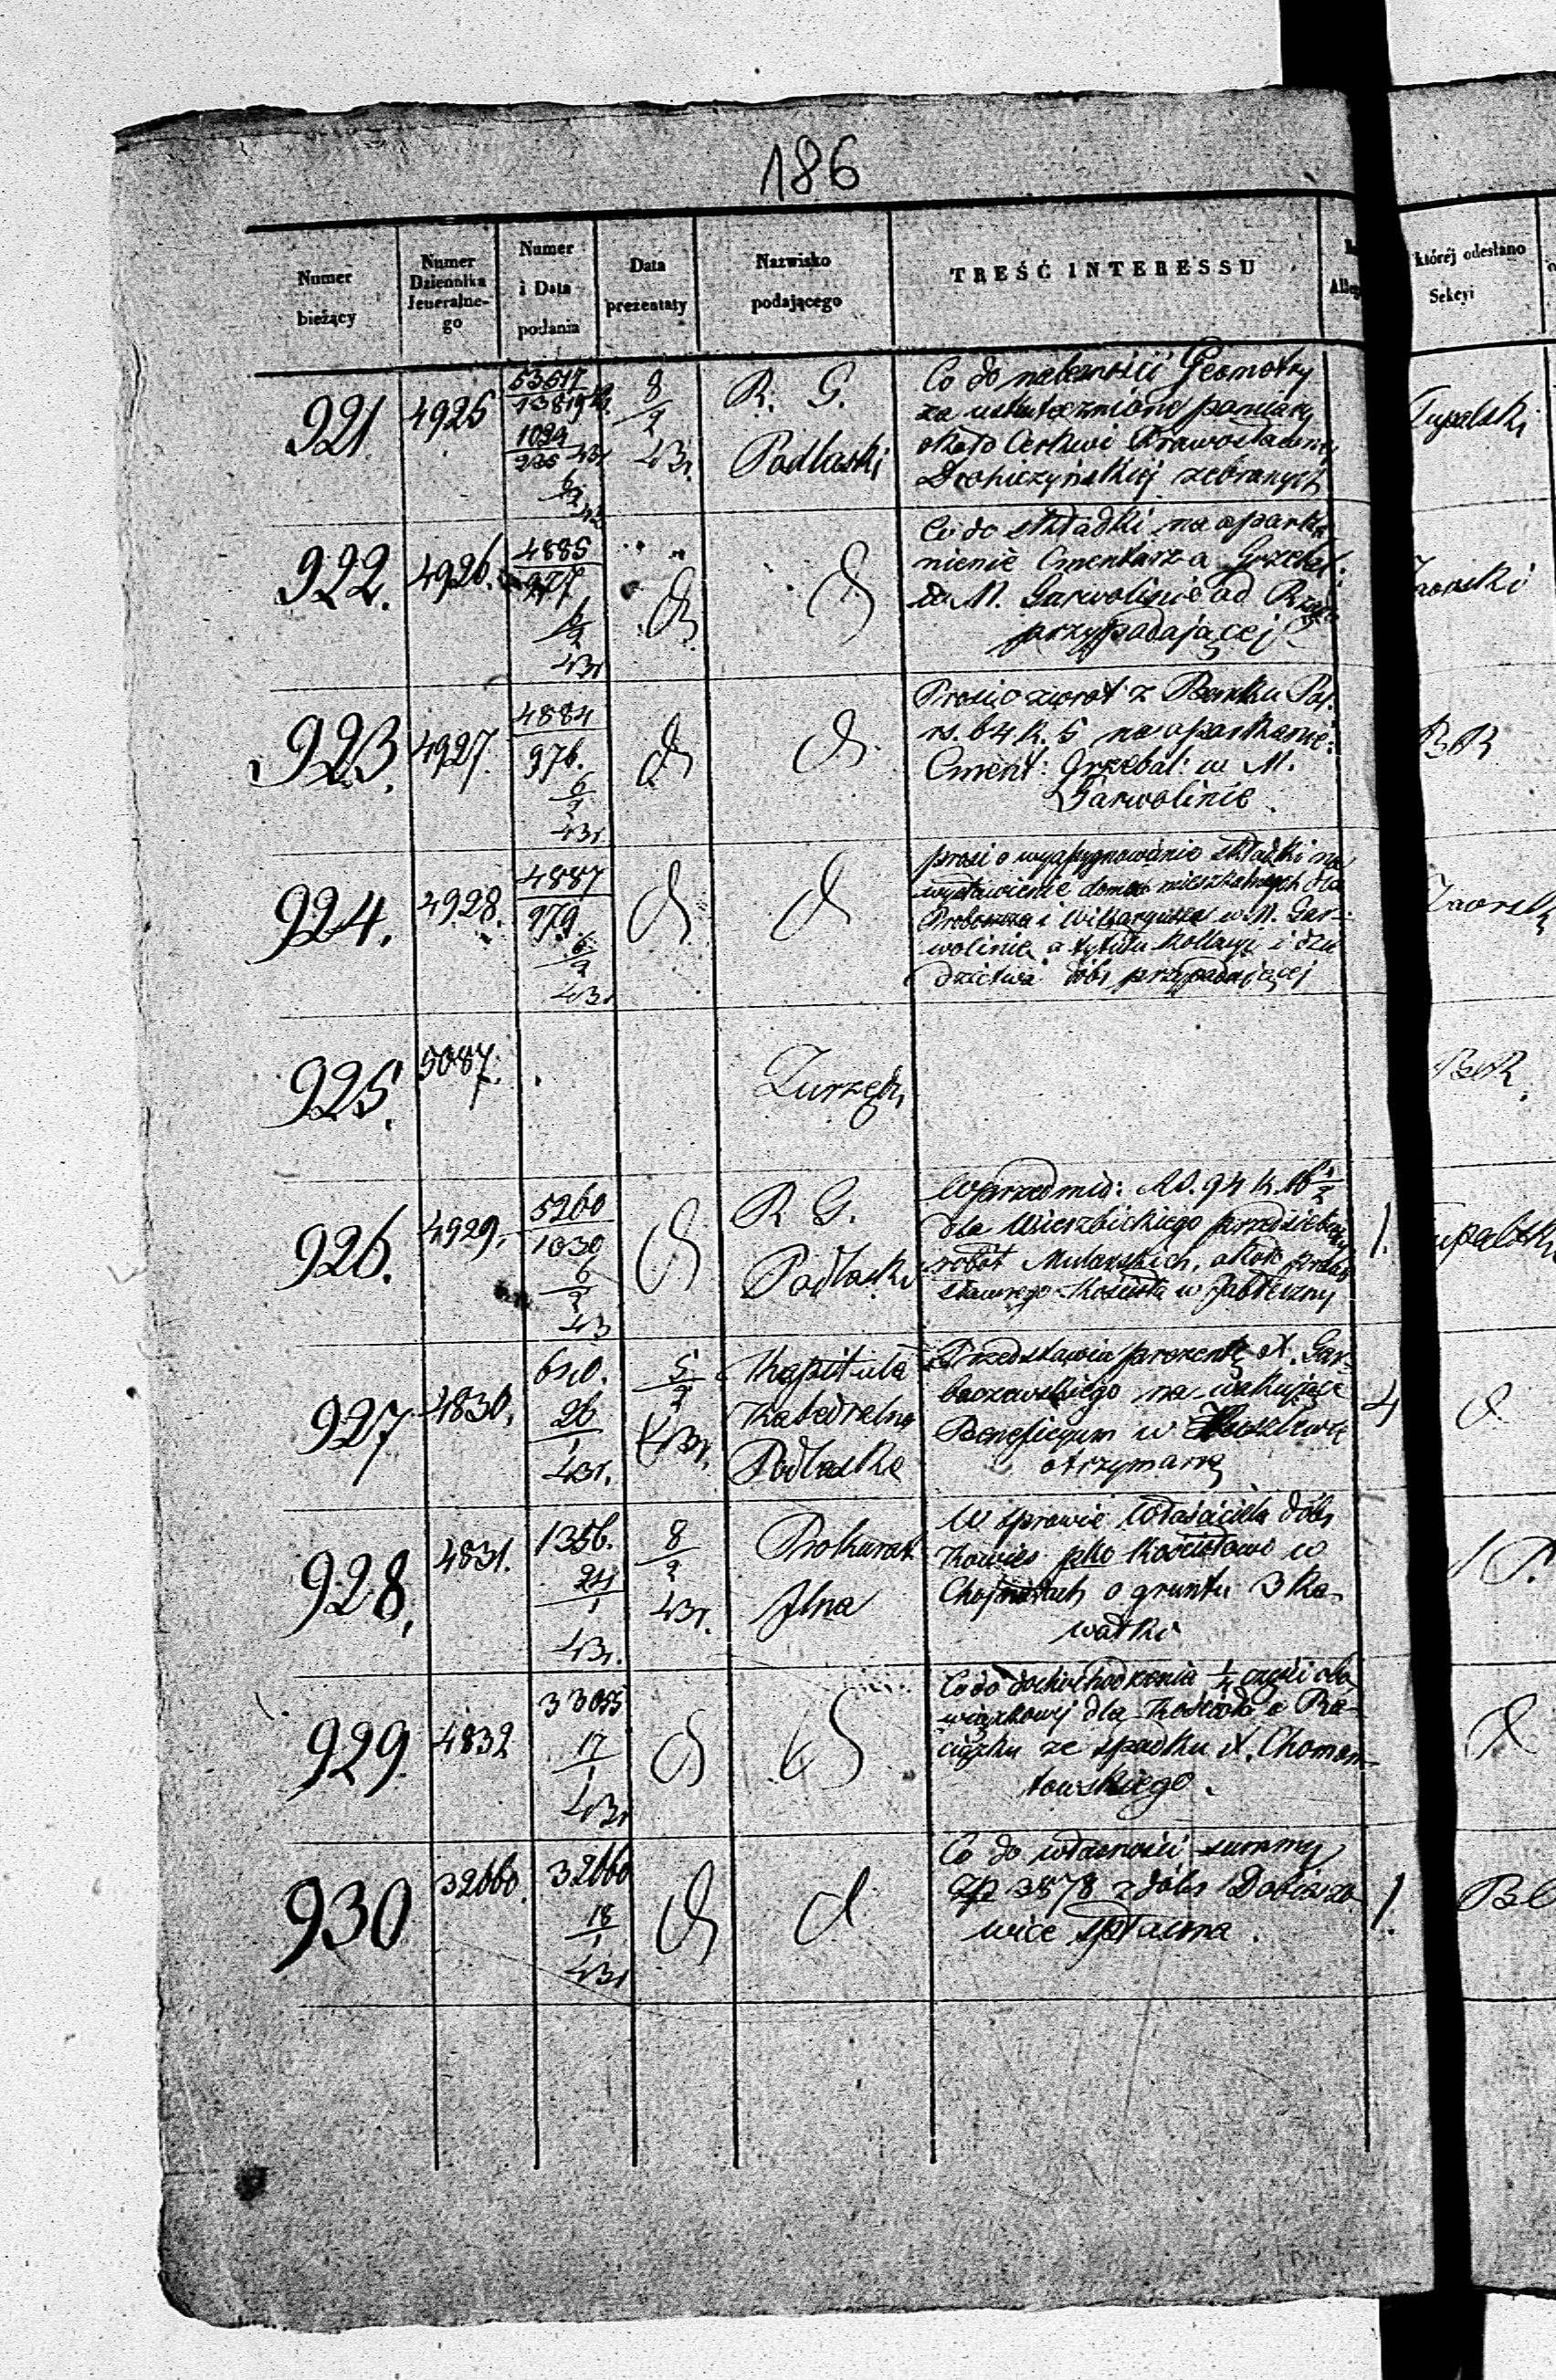 186
Numer bieżący
Numer Dziennika Jeneralnego
Numer i Data podania
Data prezentaty
Nazwisko podającego
TREŚĆ INTERESSU
której odesłano Sekcyi
921. 4925 53617 13819 1094 6/2 43r. 8/2 43r. R. G. Podlaski
Co do należności Geometry
za uskutecznione pomiary
około Cerkwi Prawosławnej
Drohiczyńskiej zebranych
Tupalski
922. 4926. 4885 977 6/2 43r
Co do składki na oparka
nienie Cmentarza Grzebal:
w M. Garwolinie od Rządu
przypadającej
923. 4927. 4884 976. 6/2 43r. BR
Prosi o zwrot z Banku Pol.
rs. 64 k. 5 na oparkanie:
Cment: Grzebal: w M.
Garwolinie
924. 4928. 4887 979. 6/2 43r
prosi o wyassygnowanie składki na
wystawienie domów mieszkalnych dla
Proboszcza i Wikaryusza w M. Gar-
wolinie, z tytułu Kollacyi i dzie
dzictwa dóbr przypadającej
925. 5087. Zurzędu BR
926. 4929. 5260 1030 6/2 43 R G. Podlaski
W przedmio: RS. 94 k. 16 1/2
dla Wierzbickiego przedsiębior
robót Mularskich, około
sławnego Kościoła w Jabłeczny
1.
927 4830. 610. 26/1 43r. 5/2 43r. Kapituła Katedralna Podlaska
Przedstawia prezentę X. Gar-
baczewskiego na wakujące
Beneficyum w
otrzymaną
4
928. 4831. 1356. 24/1 43r. 8/2 43r. Prokurat Jlna
W sprawie Właściciela dóbr
Kowies pko Kościołowi w
Chojnatach o gruntu 3 Ka-
wałki
929. 4832 33055 17/1 43r
Co do dochodzenia 1/4 części obo
wiązkowej dla Kościoła w Ra-
ciążku ze spadku X. Chomen-
towskiego.
930 32660. 32660 18/1 43r
Co do własności summy
Złp 3878 z dóbr
wice spłacona.
1.